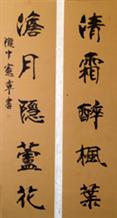 清霜醉楓葉
澹月隱蘆花
中憲章書